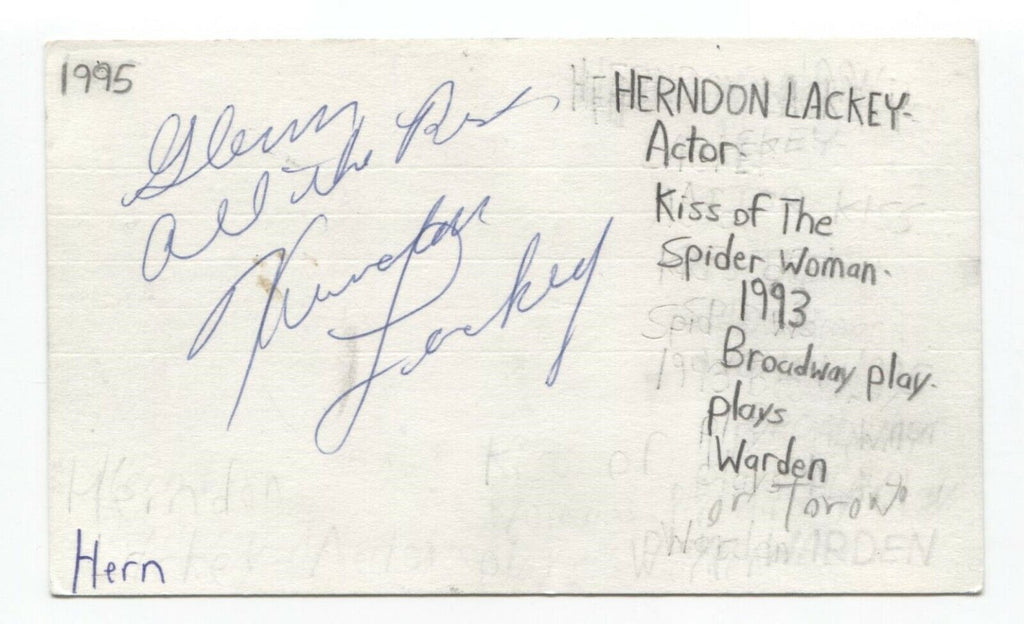 1995
Glenn
All the Best
Herndon
Lackey
HERNDON LACKEY-
Actor-
Kiss of The
Spider Woman-
1993
Broadway play-
plays
Warden
or Toronto
Hern